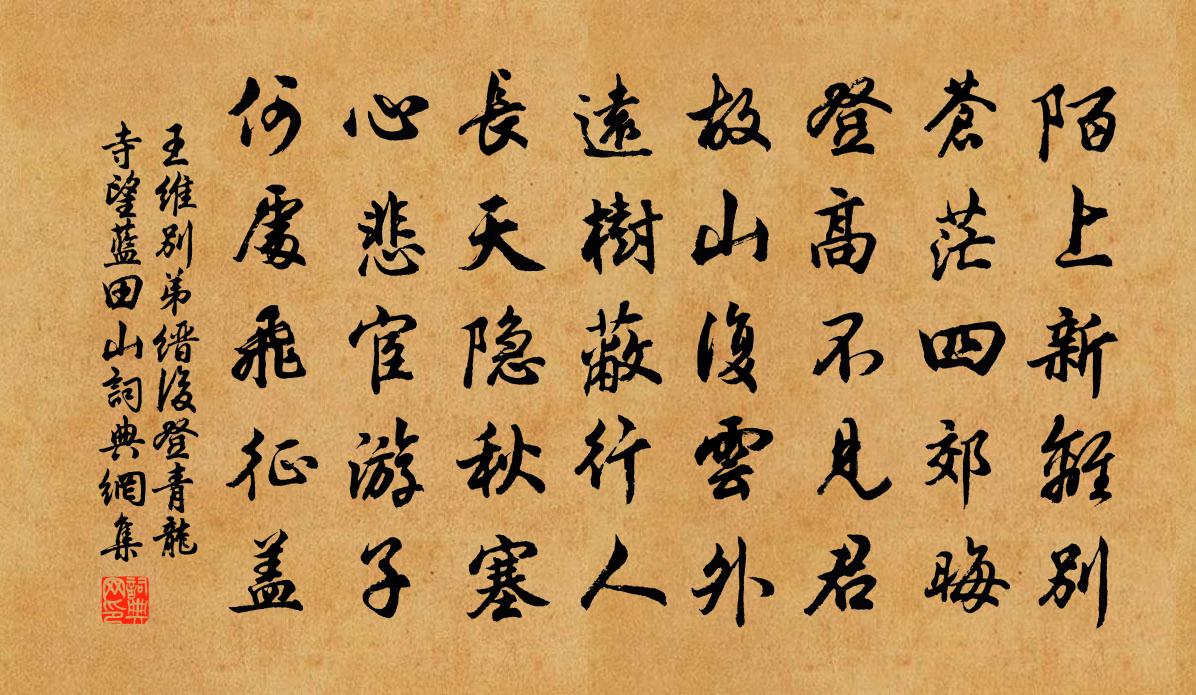 陌上新離別
蒼茫四郊晦
登高不見君
故山復雲外
遠樹蔽行人
長天隐秋塞
心悲宦游子
何處飛征盖
王維別弟縉後登青龍
寺望藍田山詞典網集
詞典網印